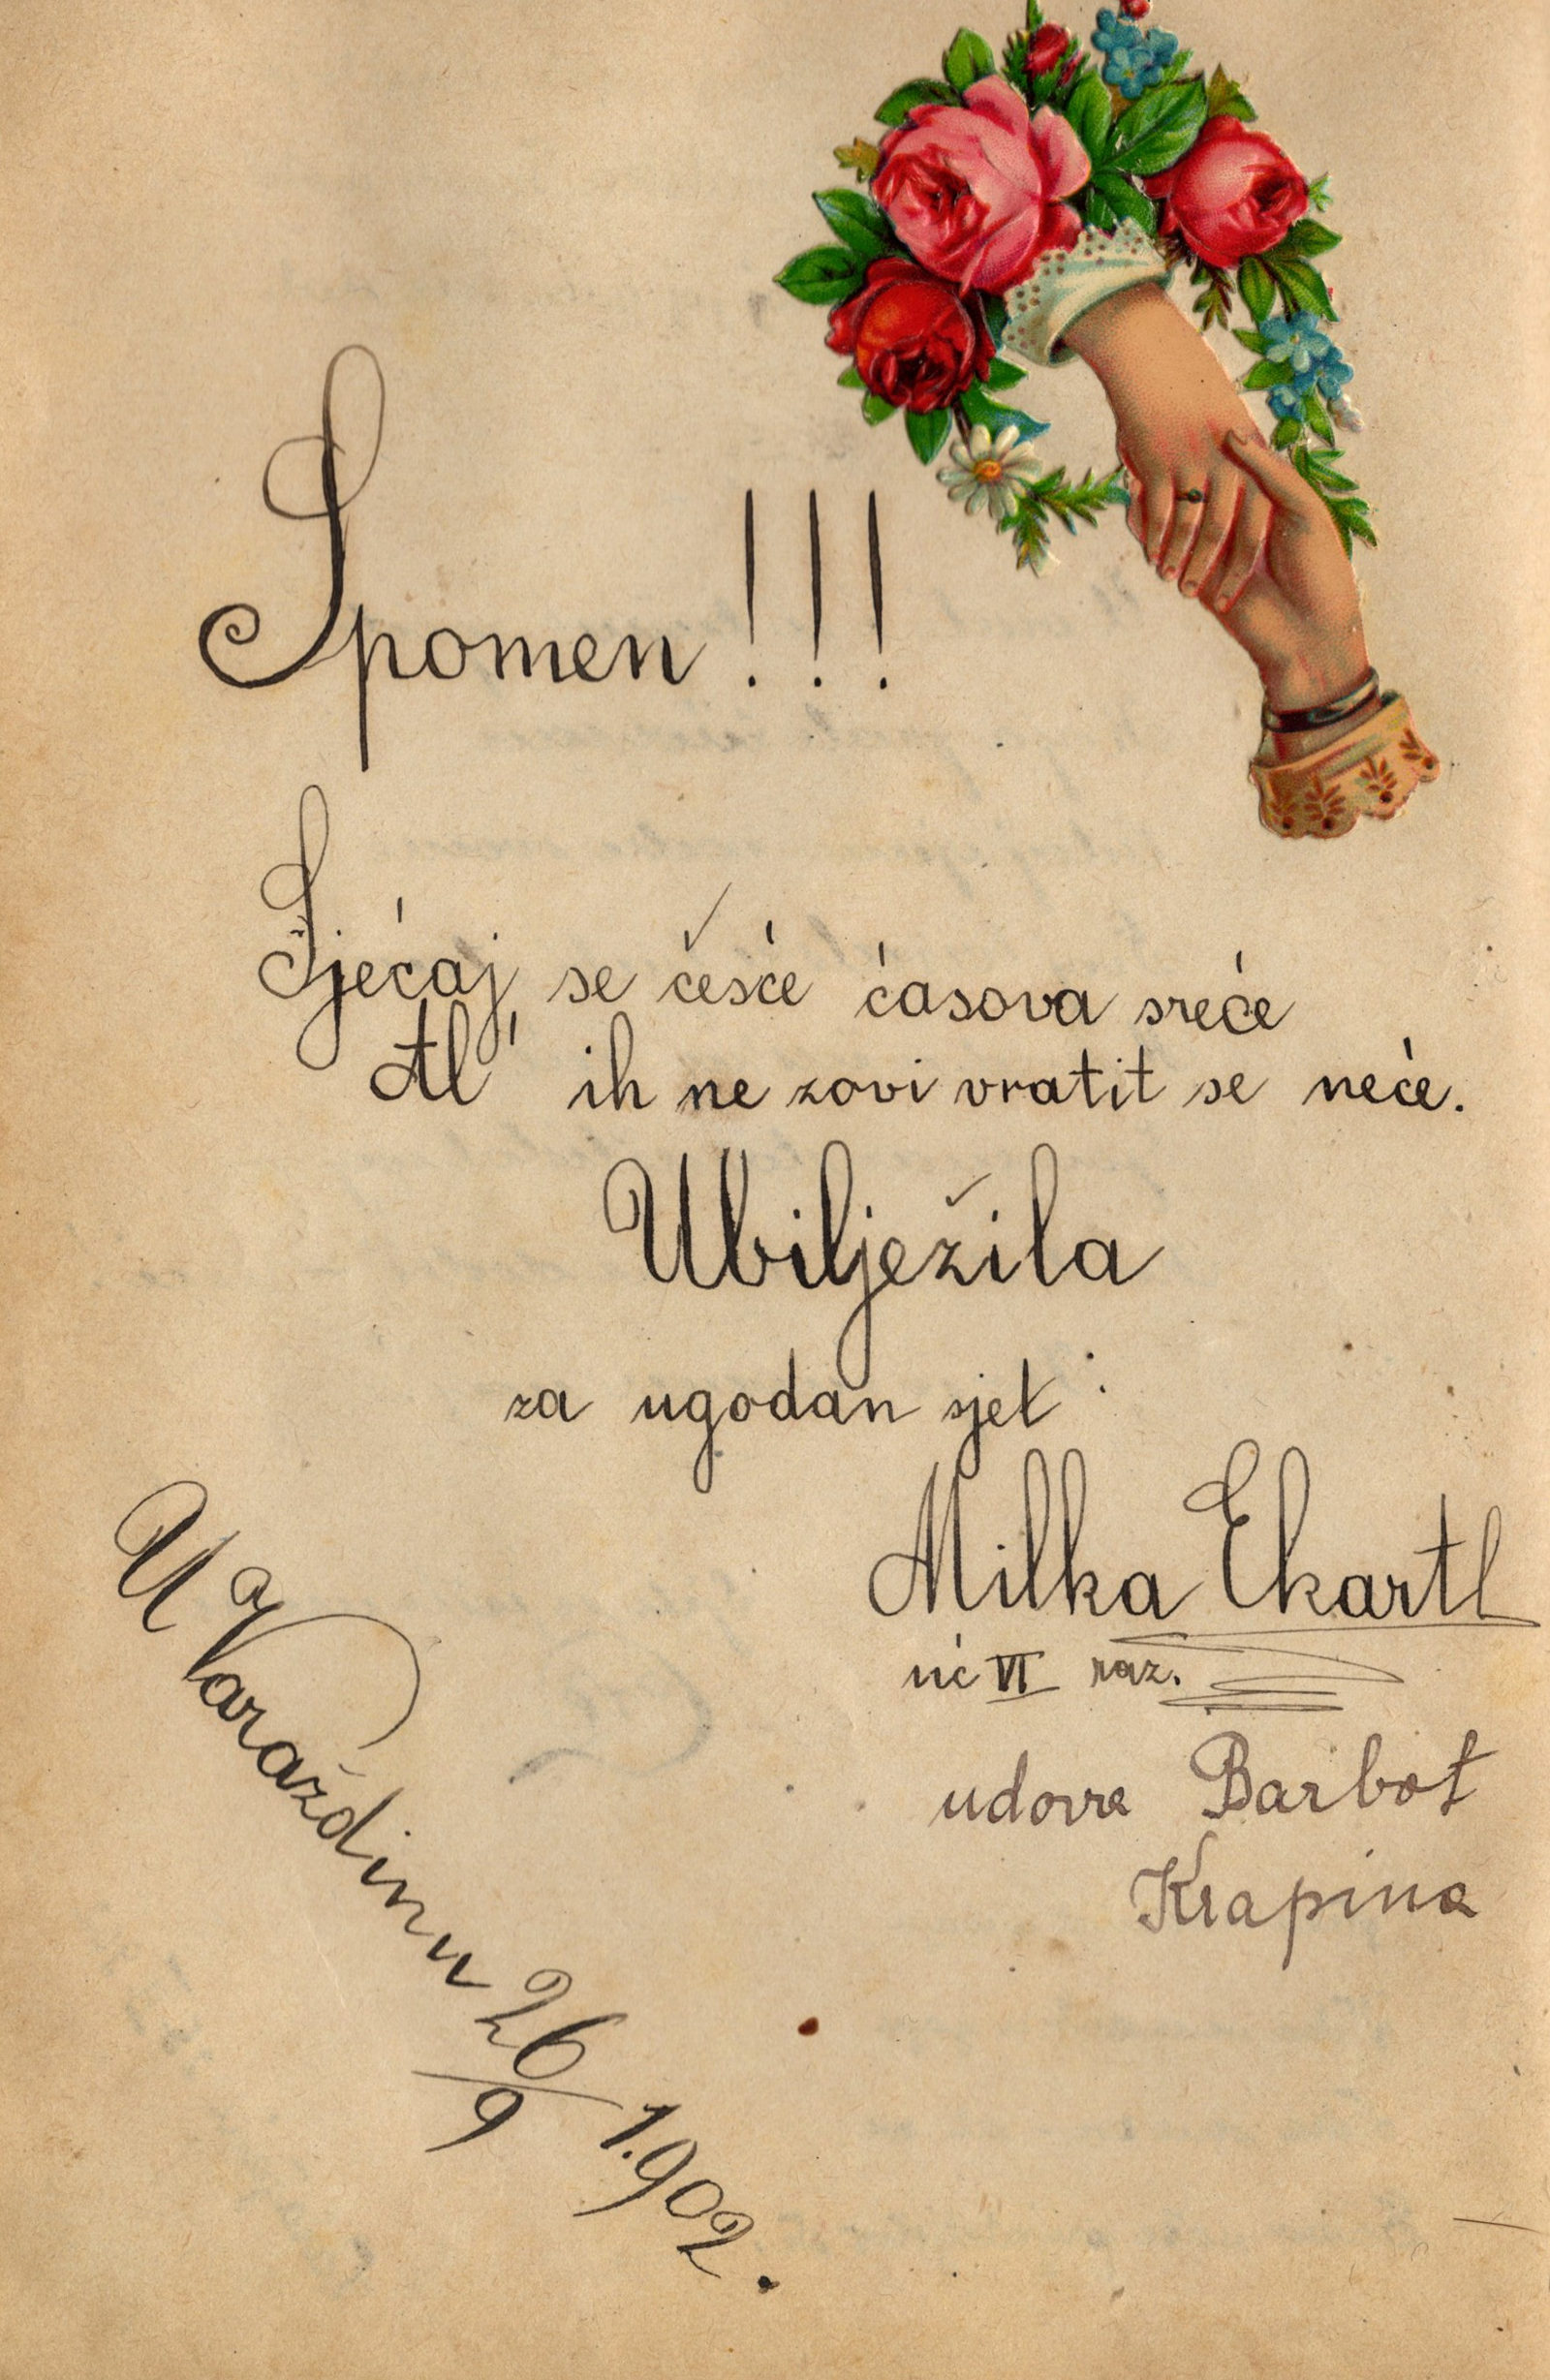 Spomen!!!
Sjećaj se češće ćasova sreće
Al' ih ne zovi vratit se neće.
Ubilježila
za ugodan sjet:
Milka Ekartl
uć VI raz.
udova Barbot
Krapina
U Varaždinu 26/9 1.902.